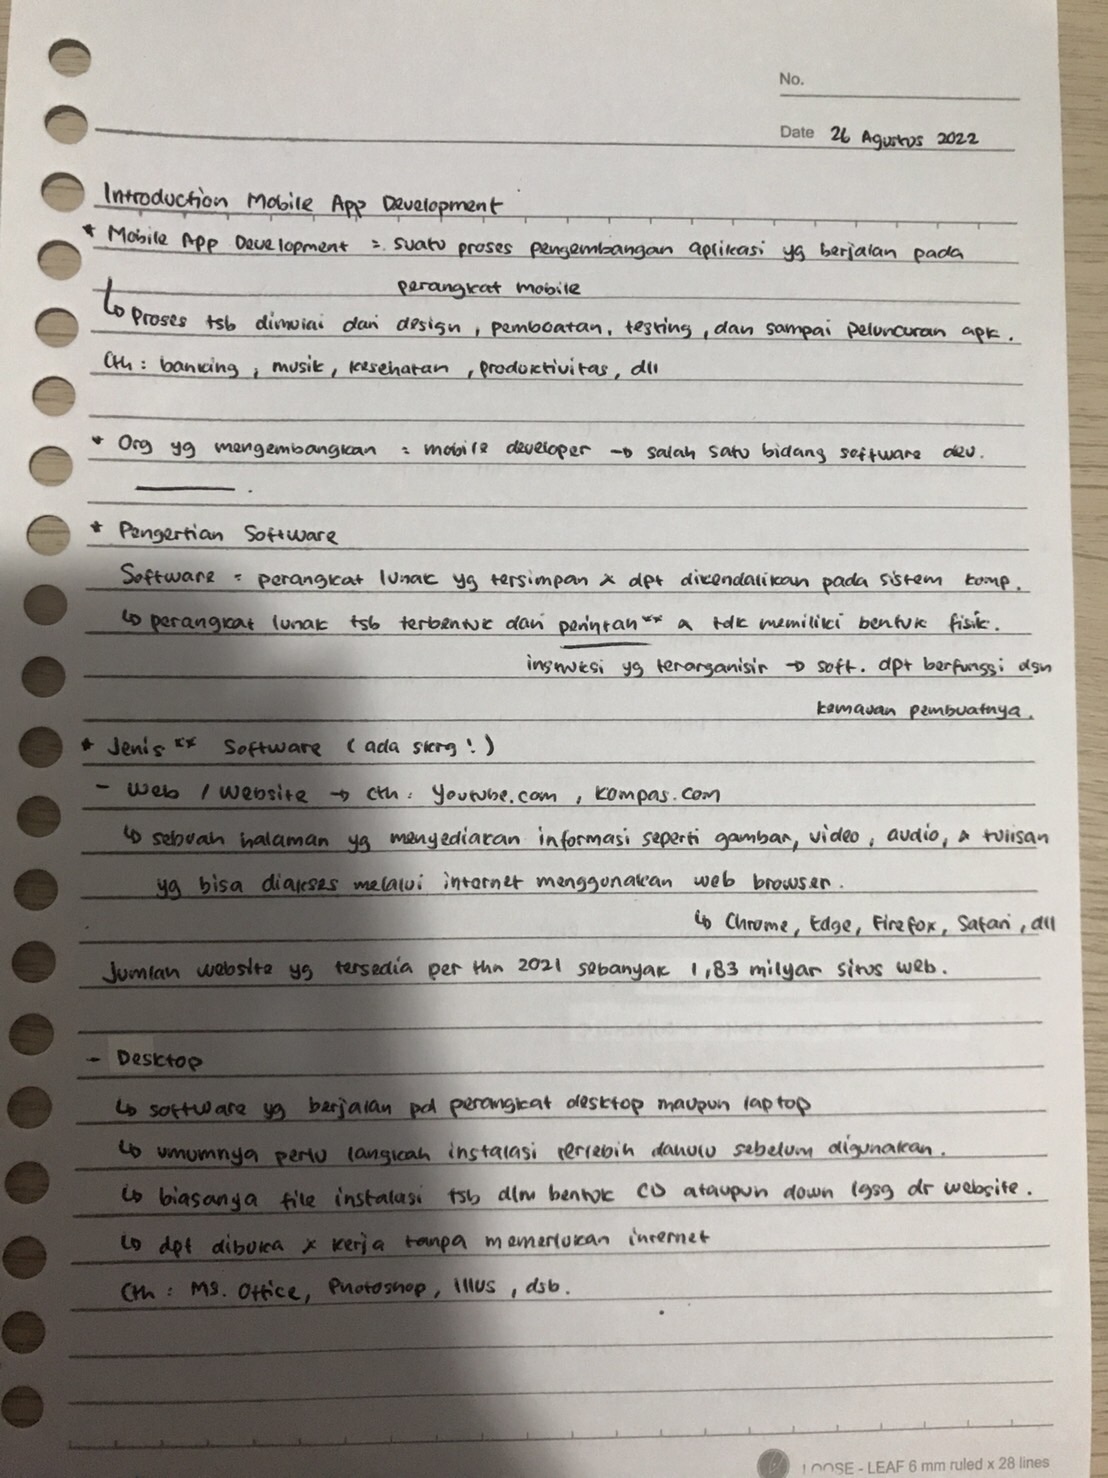 No.
Date 26 Agustus 2022
Introduction Mobile App Development
* Mobile App Development = suatu proses pengembangan aplikasi yg berjalan pada
perangkat mobile
↳ proses tsb dimulai dari design, pembuatan, testing, dan sampai peluncuran apk.
Cth : banking, musik, kesehatan, produktivitas, dll
* Org yg mengembangkan = mobile developer → salah satu bidang software dev.
* Pengertian Software
Software = perangkat lunak yg tersimpan & dpt dikendalikan pada sistem komp.
↳ perangkat lunak tsb terbentuk dari perintah" & tdk memiliki bentuk fisik.
instruksi yg terorganisir → soft. dpt berfungsi dgn
kemauan pembuatnya.
* Jenis" Software (ada skrg!)
- Web / Website → cth : Youtube.com, Kompas.com
↳ sebuah halaman yg menyediakan informasi seperti gambar, video, audio, & tulisan
yg bisa diakses melalui internet menggunakan web browser.
↳ Chrome, Edge, Firefox, Safari, dll
Jumlah website yg tersedia per thn 2021 sebanyak 1,83 milyar situs web.
- Desktop
↳ software yg berjalan pd perangkat desktop maupun laptop
↳ umumnya perlu langkah instalasi terlebih dahulu sebelum digunakan.
↳ biasanya file instalasi tsb dlm bentuk CD ataupun down lgsg dr website.
↳ dpt dibuka & kerja tanpa memerlukan internet
Cth : Ms. Office, Photoshop, Illus, dsb.
LOOSE - LEAF 6 mm ruled x 28 lines